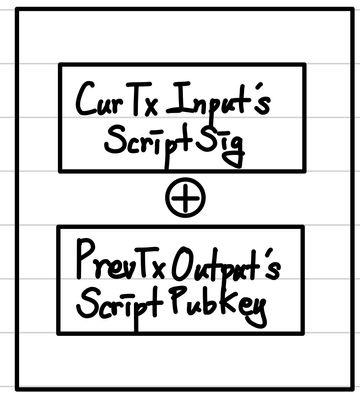 CurTx Input's
ScriptSig
⊕
PrevTx Output's
ScriptPubKey